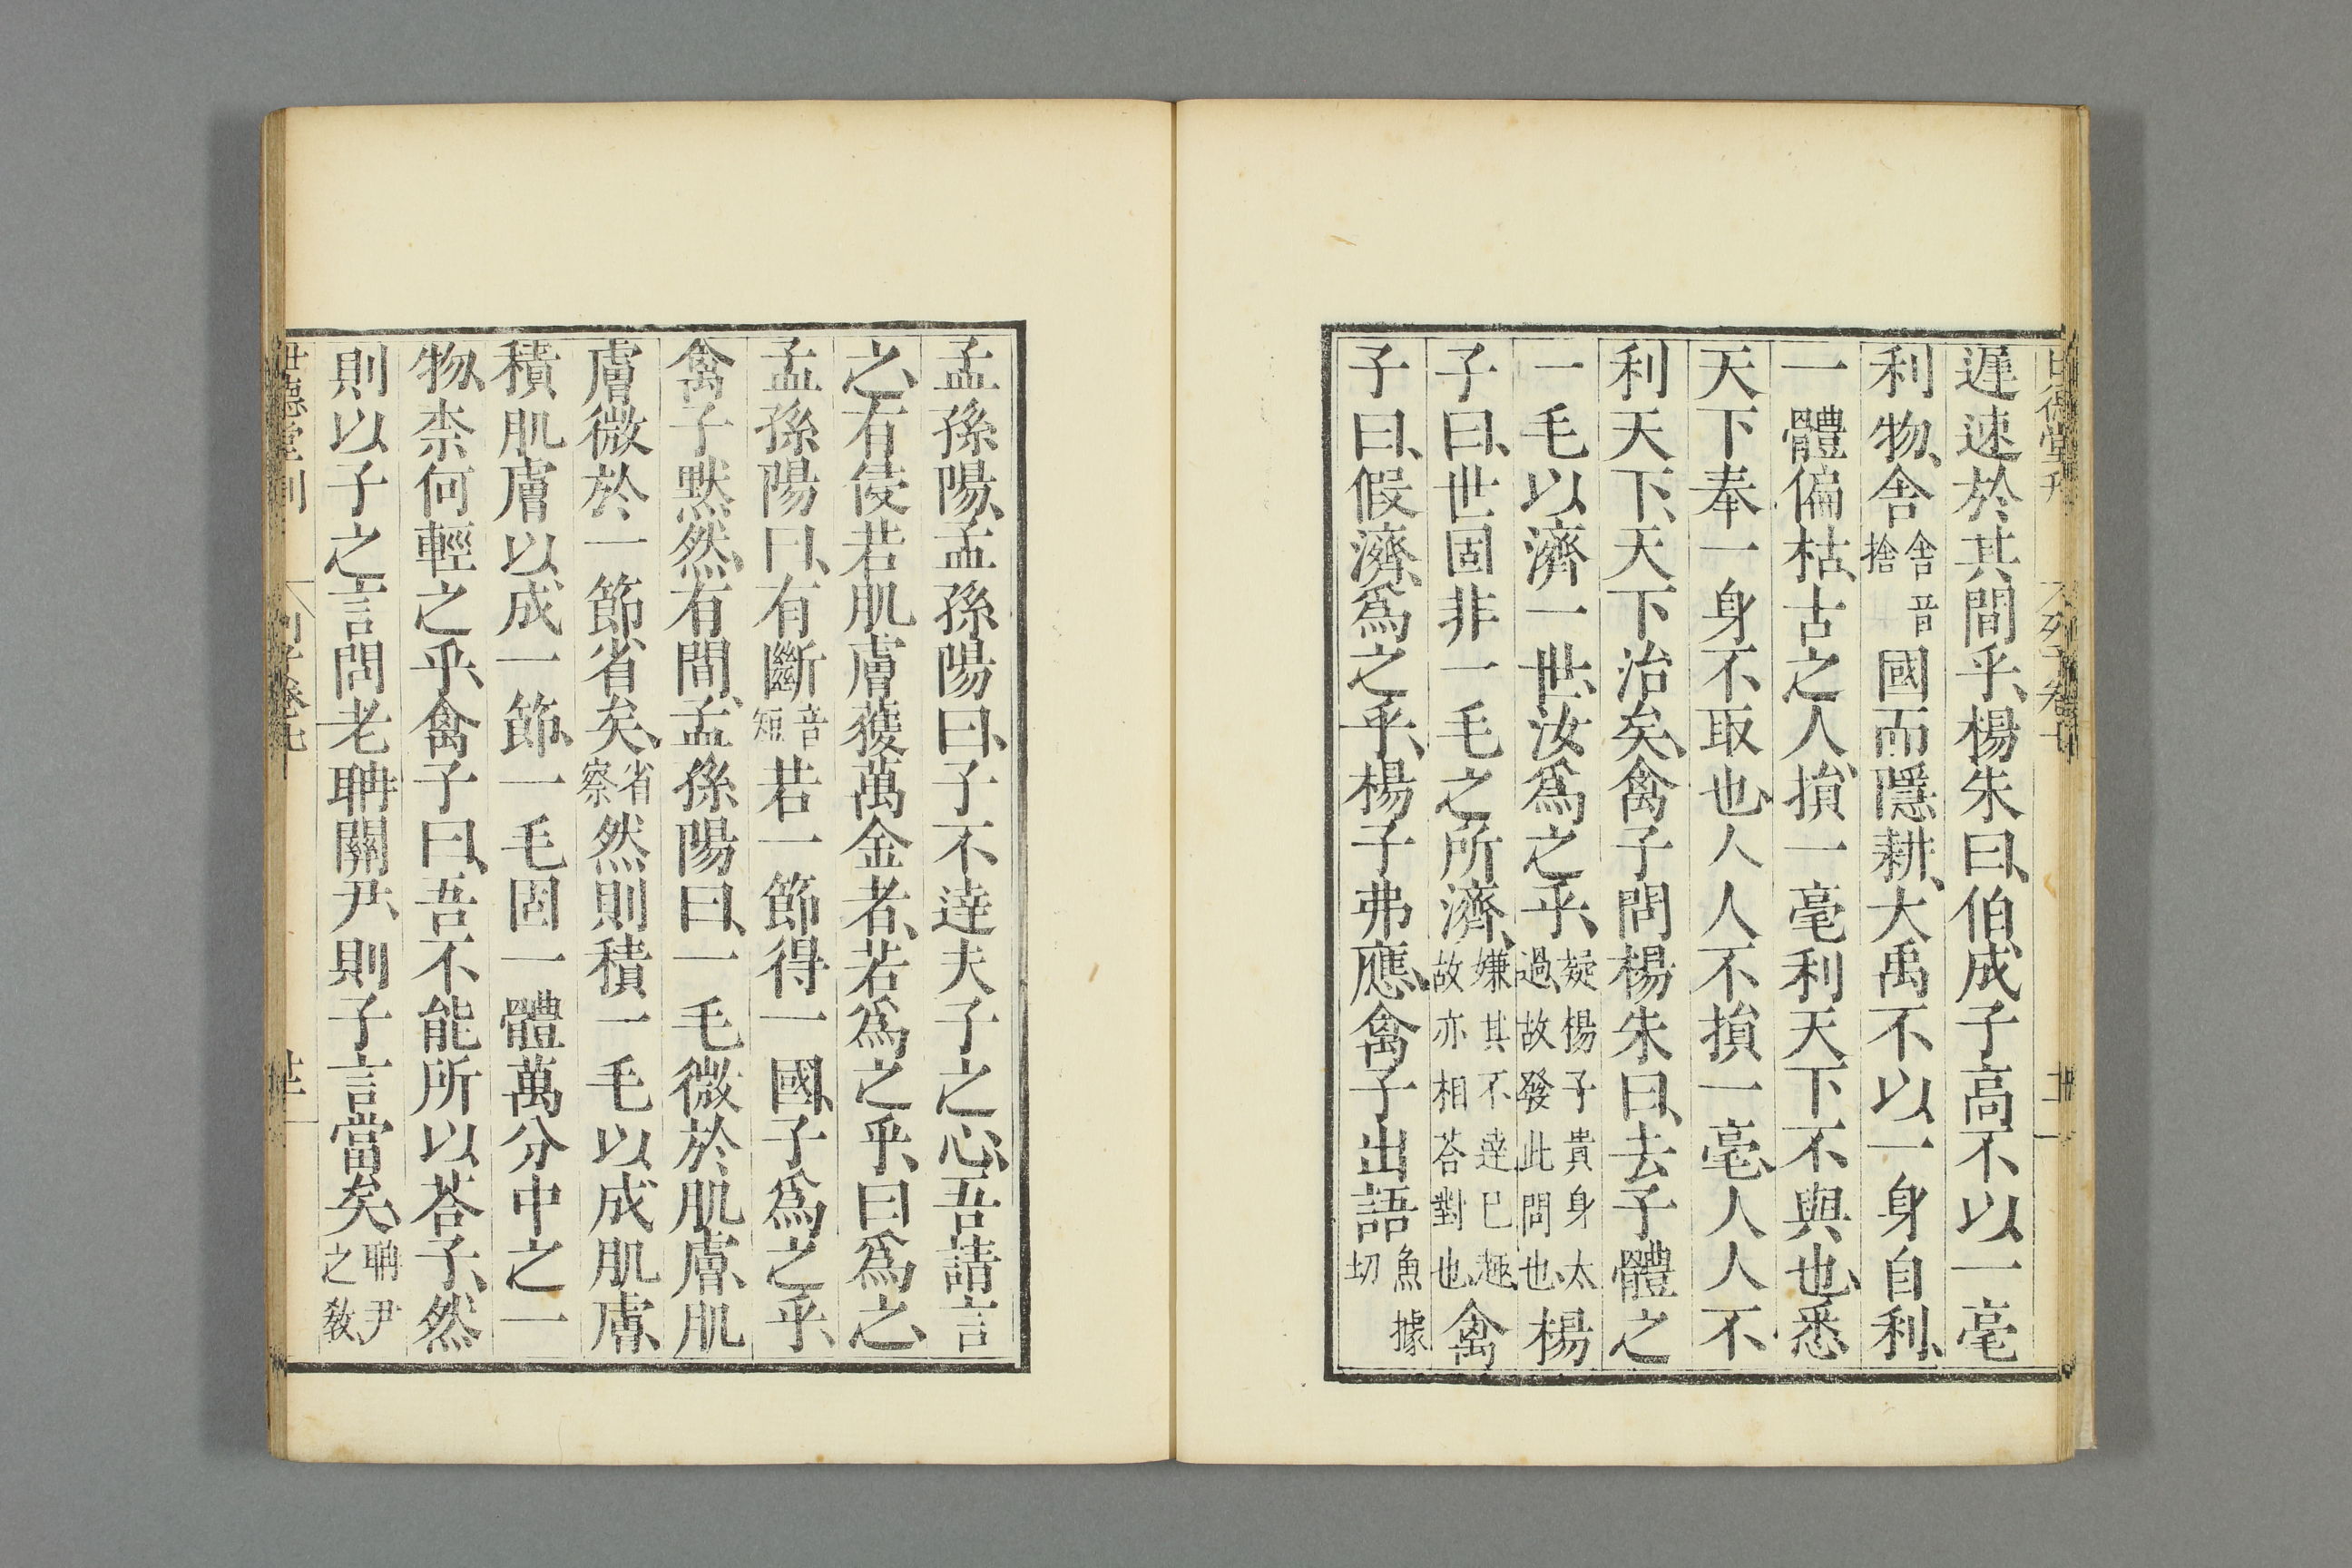 遲速於其間乎、楊朱曰、伯成子高不以一毫
利物、舍舍音捨國而隱耕、大禹不以一身自利、
一體偏枯、古之人、損一毫利天下不與也、悉
天下奉一身不取也、人人不損一毫、人人不
利天下、天下治矣、禽子問楊朱曰、去子體之
一毛以濟一世、汝爲之乎、疑楊子貴身太過、故發此問也、楊
子曰、世固非一毛之所濟、嫌其不達已趣、故亦相荅對也、禽
子曰、假濟、爲之乎、楊子弗應、禽子出語魚據切
孟孫陽、孟孫陽曰、子不達夫子之心、吾請言
之、有侵若肌膚獲萬金者、若爲之乎、曰爲之、
孟孫陽曰、有斷音短若一節得一國、子爲之乎、
禽子默然、有間、孟孫陽曰、一毛微於肌膚、肌
膚微於一節、省矣、省察然則積一毛以成肌膚、
積肌膚以成一節、一毛固一體萬分中之一
物、柰何輕之乎、禽子曰、吾不能所以荅子、然
則以子之言問老聃關尹、則子言當矣、聃尹之教、
世德堂刊
列子卷七